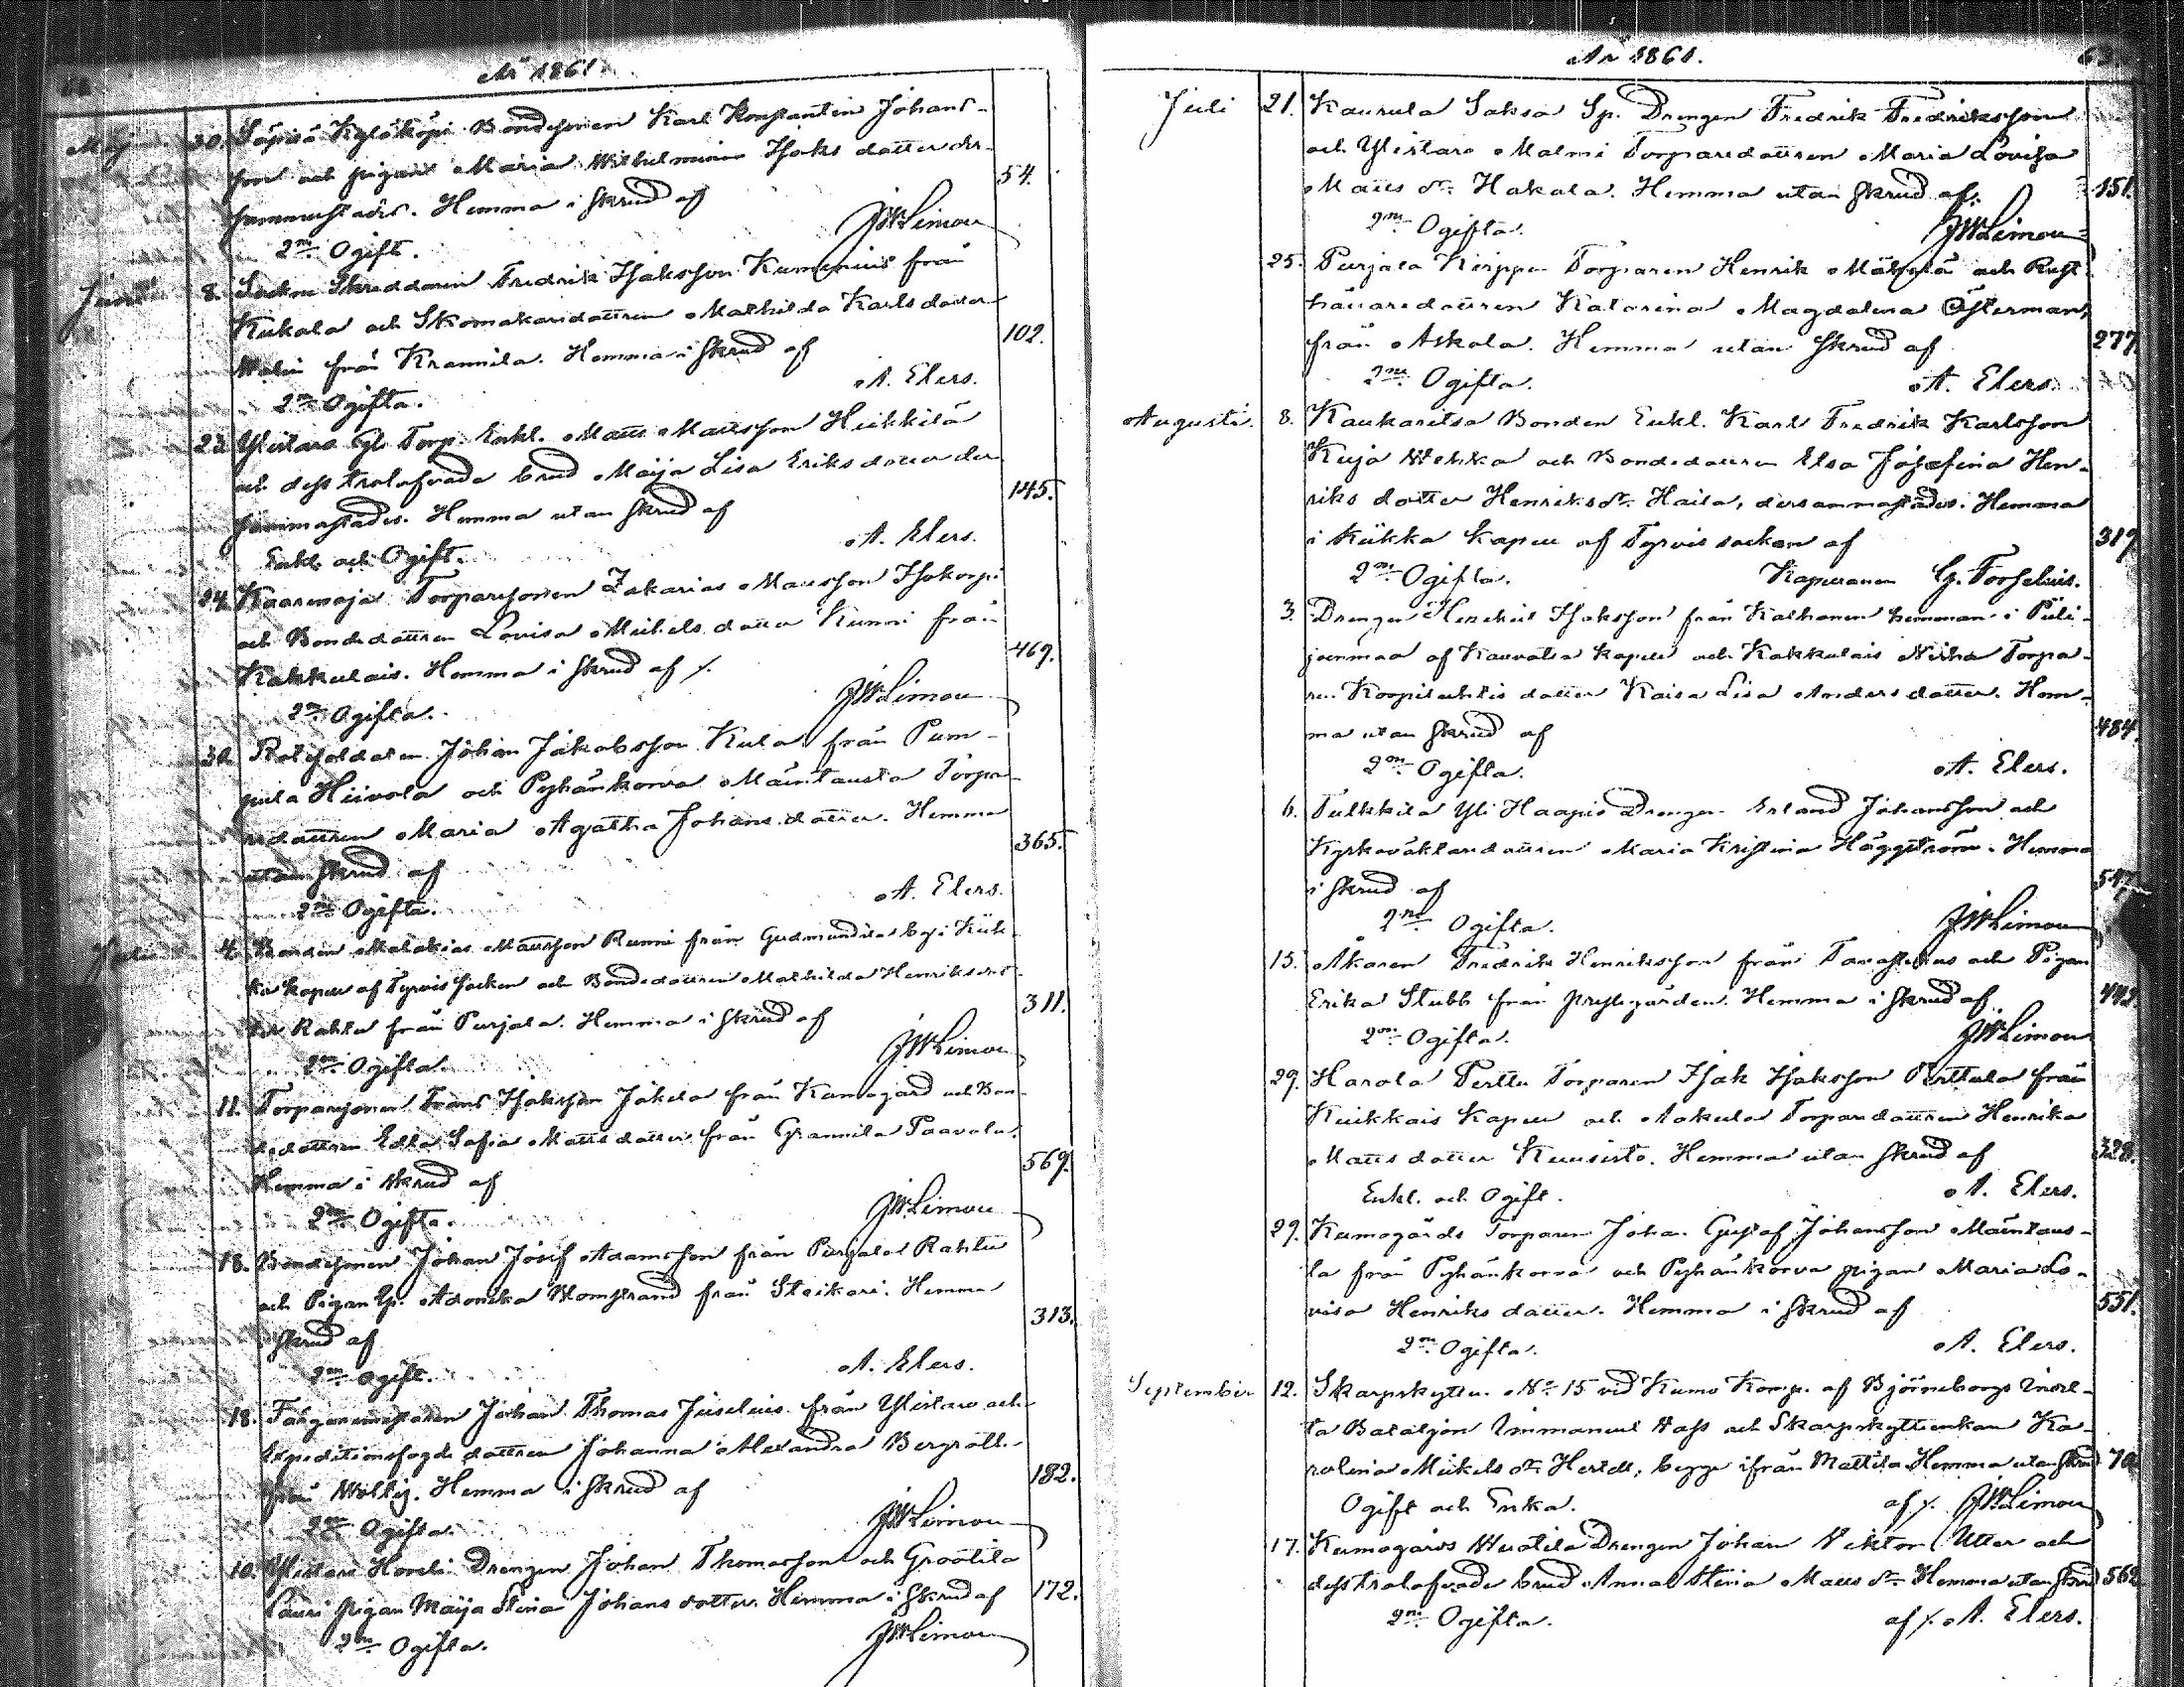 År 1861.
Maj 30. Säpilä Kyläköpi Bondesonen Karl Konstantin Johans-
son och pigan Maria Wilhelmina Isaks dotter der-
sammastädes. Hemma i skrud af 54.
2ne Ogift. JWLimon
Juni 8. Skreddaren Fredrik Isaksson Kumenius från
Kukola och Skomakaredottren Mathilda Karls dotter
Malin från Krannila. Hemma i skrud af 102.
2ne Ogifta. A. Elers.
23. Ylistaro Torp. Enkl. Matts Mattsson Heikkilä
och dess trolofvade brud Maija Lisa Eriks dotter der
sammastädes. Hemma utan skrud af 145.
Enkl. och Ogift. A. Elers.
24. Kaarenoja Torparesonen Zakarias Mattsson Isokorpi
och Bondedottren Lovisa Mikels dotter Kunni från
Kakkulais. Hemma i skrud af /. 469.
2ne Ogifta. JWLimon
30. Rotesoldaten Johan Jakobsson Kula från Pum-
pula Hiivola och Pyhänkorva Mäntausta Torpa-
redottren Maria Agatha Johans dotter. Hemma
utan skrud af 365.
2ne Ogifta. A. Elers.
Juli 4. Bonden Malakias Mattsson Runni från Gudmundila by i Kiik-
ka kapell af Tyrvis socken och Bondedottren Mathilda Henriks dot-
ter Rahtu från Purjala. Hemma i skrud af 311.
2ne Ogifta. JWLimon
11. Torparesonen Frans Isaksson Jäkelä från Kumogård och Bon-
dedottren Edla Sofia Matts dotter från Grannila Paavola.
Hemma i skrud af 569.
2ne Ogifta. JWLimon
18. Bondesonen Johan Josef Adamsson från Purjala Rahtu
och Pigan Sp. Adonika Blomstrand från Steikari. Hemma
i skrud af 313.
2ne Ogift. A. Elers.
18. Färgaremästaren Johan Thomas Juselius från Ylistaro och
Expeditionsfogde dottren Johanna Alexandra Bergroth
från Hemma i skrud af 182.
2ne Ogifta. JWLimon
10. Ylistaro Hoveli Drengen Johan Thomasson och Groötila
Pauri pigan Maija Stina Johans dotter. Hemma i skrud af 172.
2ne Ogifta. JWLimon
År 1861. 63.
Juli 21. Kaurula Saksa Sp. Drengen Fredrik Fredriksson
och Ylistaro Malmi Torparedottren Maria Lovisa
Matts dr. Hakala. Hemma utan skrud af. 151.
2ne Ogifta. JWLimon
25. Purjala Kirppu Torparen Henrik Mäkelä och Rust-
hållaredottren Katarina Magdalena Österman,
från Askola. Hemma utan skrud af 277.
2ne Ogifta. A. Elers.
Augusti. 8. Kaukaritsa Bonden Enkl. Karl Fredrik Karlsson
Kuja Wehka och Bondedottren Elsa Josefina Hen-
riks dotter Henriksdr. Haila, dersammastädes. Hemma
i Kiikka Kapell af Tyrvis socken af 319
2ne Ogifta. Kapellanen G. Forselius.
3. Drengen Henrik Isaksson från Kathanen hemman i Piili-
joenmaa af Kauvatsa kapell och Kakkulais Niiha Torpa-
re Korpilahtis dotter Kaisa Lisa Anders dotter. Hem-
ma utan skrud af 484.
2ne Ogifta. A. Elers.
6. Tulkkila Yli Haapio Drengen Erland Johansson och
Kyrkováktaredottren Maria Kristina Häggström. Hemma
i skrud af 547
2ne Ogifta. JWLimon
15. Åkaren Fredrik Henriksson från Tavastehus och Pigan
Erika Stubb från prestgården. Hemma i skrud af 442
2ne Ogifta. JWLimon
29. Harola Perttu Torparen Isak Isaksson Perttula från
Keikkais Kapell och Aokula Torparedottren Henrika
Matts dotter Kuusisto. Hemma utan skrud af 328.
Enkl. och Ogift. A. Elers.
29. Kumogårds Torparen Johan Gustaf Johansson Mäntaus-
ta från Pyhänkorva och Pyhänkorva pigan Maria Lo-
visa Henriks dotter. Hemma i skrud af 551.
2ne Ogifta. A. Elers.
September 12. Skarpskytten No 15 vid Kumo Komp. af Björneborgs indel-
ta Bataljon Immanuel Hass och Skarpskytteenkan Ka-
rolina Mikels dr. Hertell, begge ifrån Mattila. Hemma utan skrud 70
Ogift och Enka. af /. JWLimon
17. Kumogårds Wuotila Drengen Johan Viktor Utter och
dess trolofvade brud Anna Stina Matts dr. Hemma utan skrud 562
2ne Ogifta. af /. A. Elers.